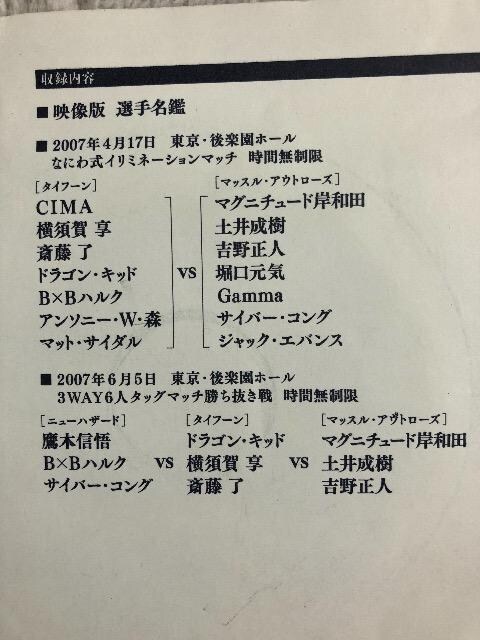 収録内容
■映像版 選手名鑑
■2007年4月17日 東京・後楽園ホール
なにわ式イリミネーションマッチ 時間無制限
[タイフーン] [マッスル・アウトローズ]
CIMA マグニチュード岸和田
横須賀 享 土井成樹
斎藤 了 吉野正人
ドラゴン・キッド vs 堀口元気
B×Bハルク Gamma
アンソニー・W・森 サイバー・コング
マット・サイダル ジャック・エバンス
■2007年6月5日 東京・後楽園ホール
3WAY6人タッグマッチ勝ち抜き戦 時間無制限
[ニューハザード] [タイフーン] [マッスル・アウトローズ]
鷹木信悟 ドラゴン・キッド マグニチュード岸和田
B×Bハルク vs 横須賀 享 vs 土井成樹
サイバー・コング 斎藤 了 吉野正人